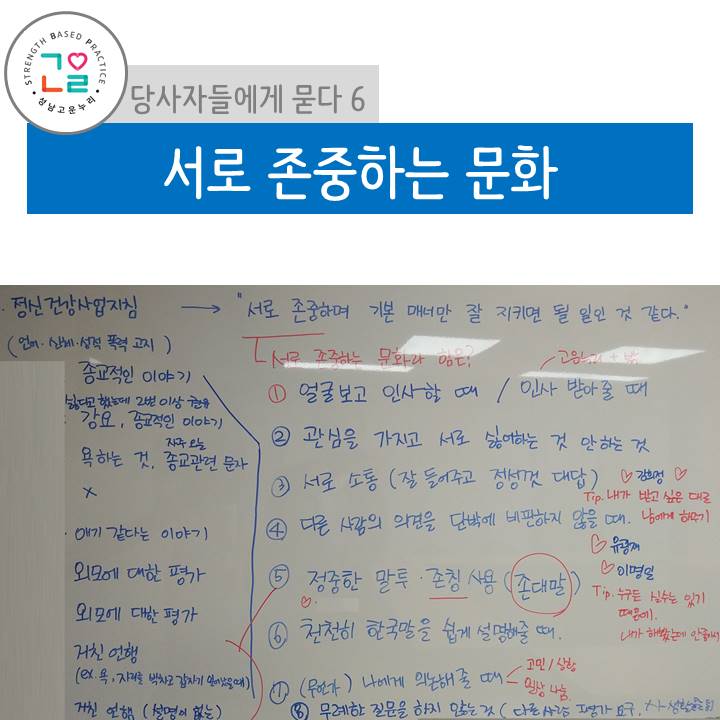 STRENGTH BASED PRACTICE
성남고운누리
당사자들에게 묻다 6
서로 존중하는 문화
· 정신건강사업지침 → "서로 존중하며 기본 매너만 잘 지키면 될 일인 것 같다."
(언어·신체·성적 폭력 고지)
서로 존중하는 문화란 함은?
종교적인 이야기
싫다고 했는데 2번 이상
강요, 종교적인 이야기
자주 오는
욕하는 것, 종교관련 문자
x
· 애기 같다는 이야기
외모에 대한 평가
외모에 대한 평가
거친 언행
(ex. 욕,
거친 언행 (설명이 없는)
① 얼굴보고 인사할 때 / 인사 받아줄 때
② 관심을 가지고 서로 싫어하는 것 안하는 것
③ 서로 소통 (잘 들어주고 정성껏 대답)
Tip. 내가 받고 싶은 대로
남에게 해주기
④ 다른 사람의 의견을 단박에 비판하지 않을 때.
♡ 유광재
♡ 이명일
⑤ 정중한 말투·존칭 사용 (존대말)
Tip. 누구든 실수는 있기
때문에.
⑥ 천천히 한국말을 쉽게 설명해줄 때.
⑦ (무언가) 나에게 의논해줄 때
고민/상황
일상 나눔
⑧ 무례한 질문을 하지 않는 것 (다른사람 평가 요구,